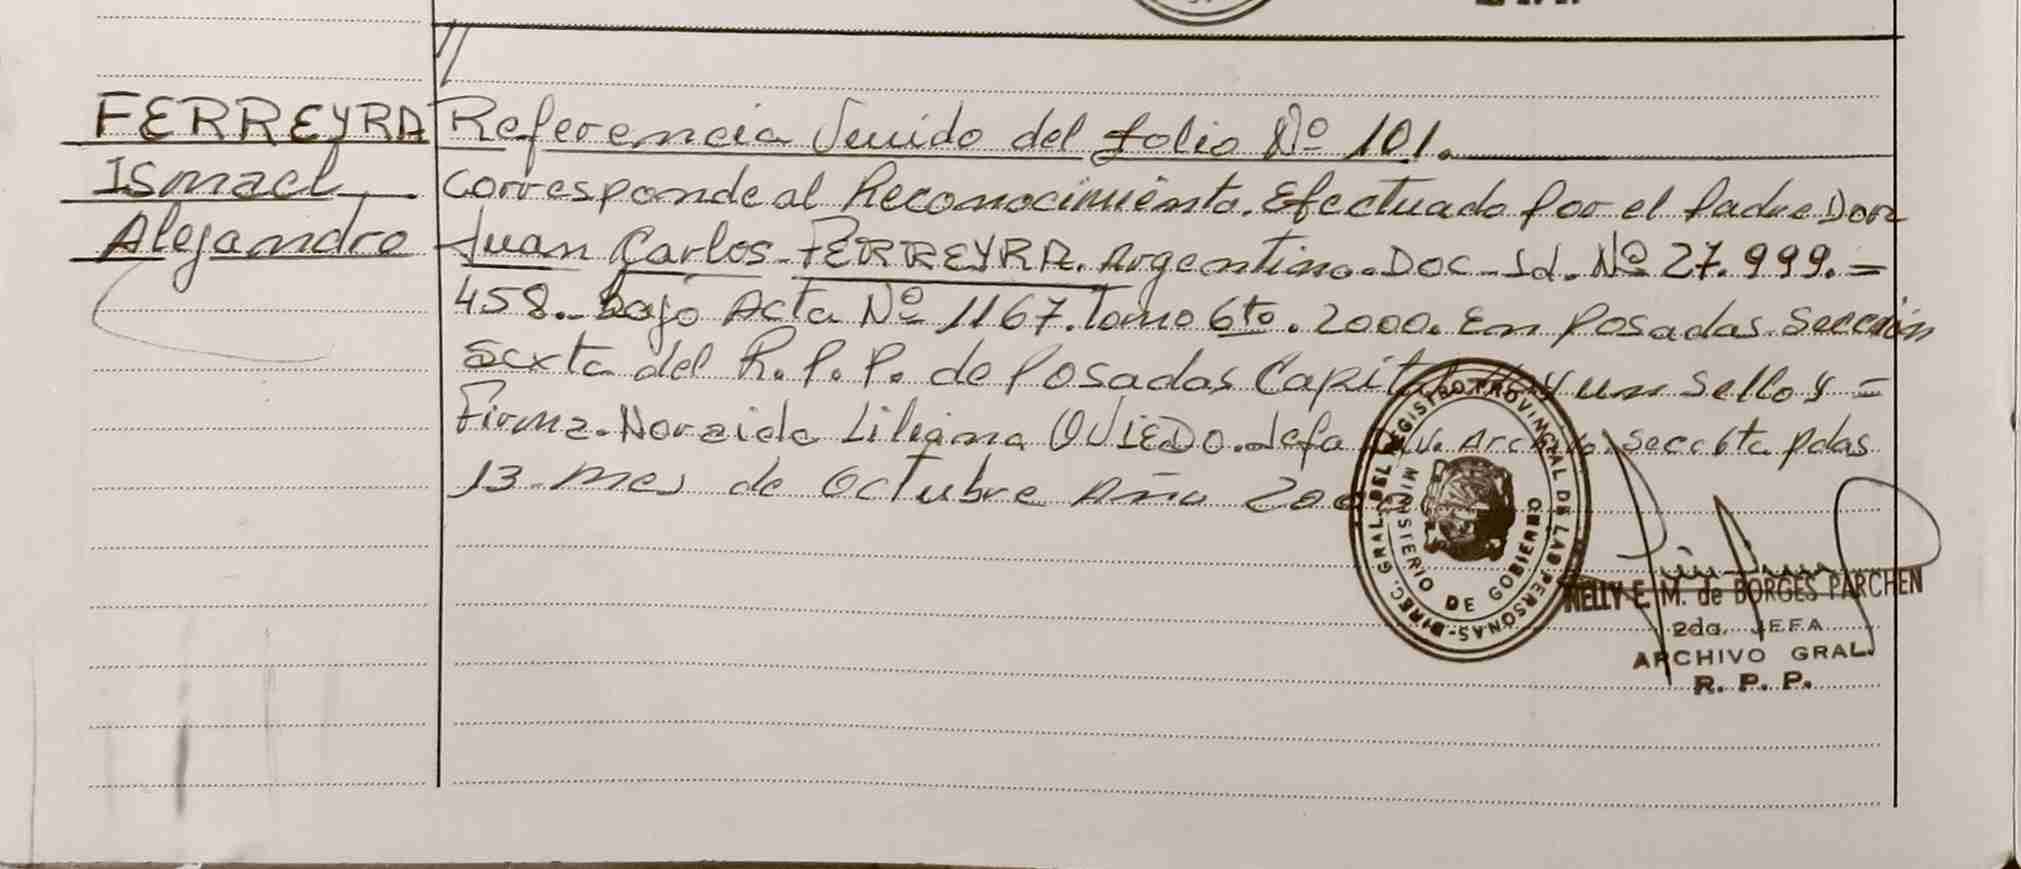 FERREYRA Referencia Venido del folio Nº 101.
Ismael Corresponde al Reconocimiento. Efectuado por el Padre Don
Alejandro Juan Carlos. FERREYRA. Argentino. Doc. Id. Nº 27.999.=
458.- bajo Acta Nº 1167. Tomo 6to. 2000. En Posadas. Sección
Sexta del R. P. P. de Posadas Capital y un Sello y =
Firma. Noraida Liliana OVIEDO. Jefa Archivo. Secc 6ta pdas
13. mes de Octubre Año
DIREC. GRAL. DEL REGISTRO PROVINCIAL DE LAS PERSONAS
MINISTERIO DE GOBIERNO
NELLY E. M. de BORGES PARCHEN
2da. JEFA
ARCHIVO GRAL.
R. P. P.